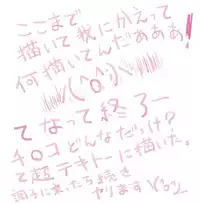 ここまで
描いて我にかえって
何描いてんだああぁ!
\(^o^)/
てなって終了ー
チ○コどんなだっけ?
て超テキトーに描いた。
調子に乗ったら続き
やります